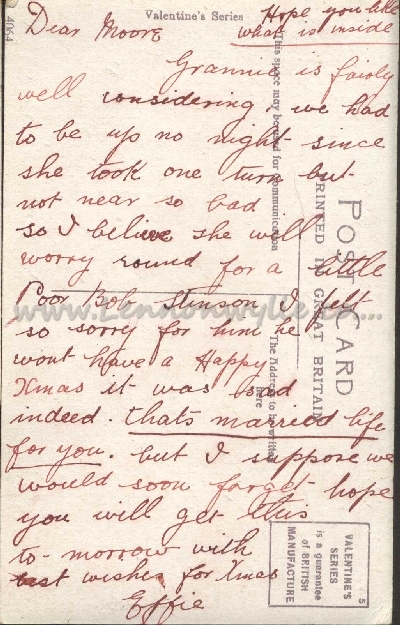 4064
Valentine's Series
Hope you like
what is inside
Dear Moore
Grannie is fairly
well considering. we had
to be up no night since
she took one turn but
not near so bad
so I believe she will
worry round for a little
Poor Bob Stinson I felt
so sorry for him he
wont have a Happy
Xmas it was sad
indeed. thats married life
for you. but I suppose we
would soon forget hope
you will get this
to-morrow with
best wishes for Xmas
Effie
This space may be used for communication
The Address to be written
here
POST CARD
PRINTED IN GREAT BRITAIN
VALENTINE'S
SERIES
is a guarantee
of BRITISH
MANUFACTURE
5
www.Lennonwylie.co...